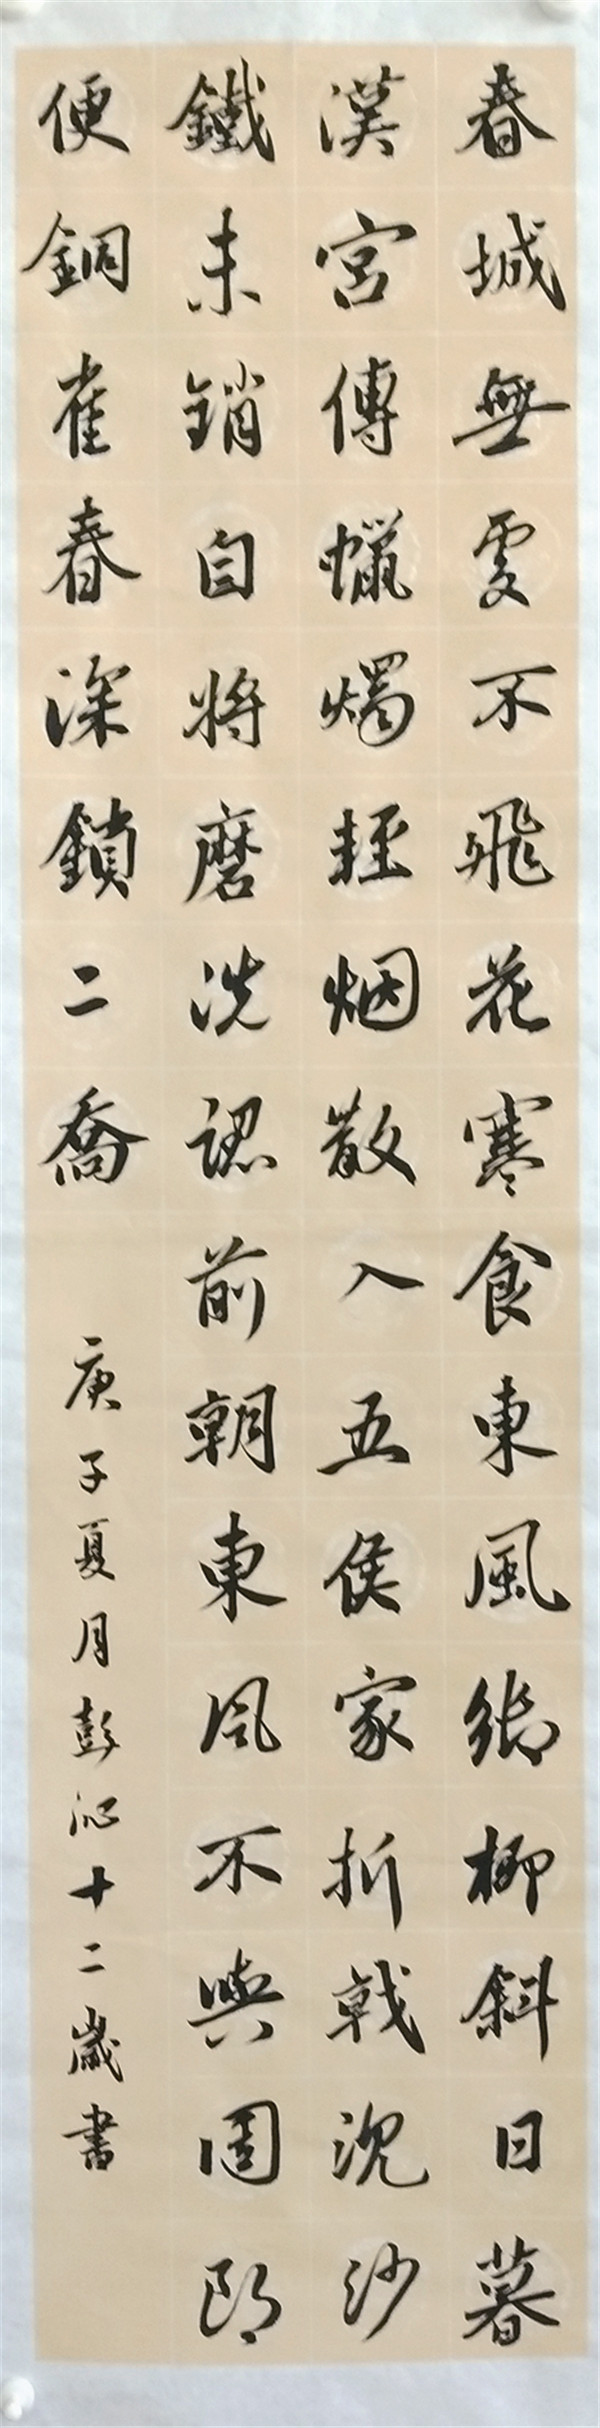 春城無處不飛花寒食東風御柳斜日暮
漢宮傳蠟燭輕烟散入五侯家折戟沈沙
鐵未銷自將磨洗認前朝東风不與周郎
便銅雀春深鎖二喬
庚子夏月彭沁十二歲書